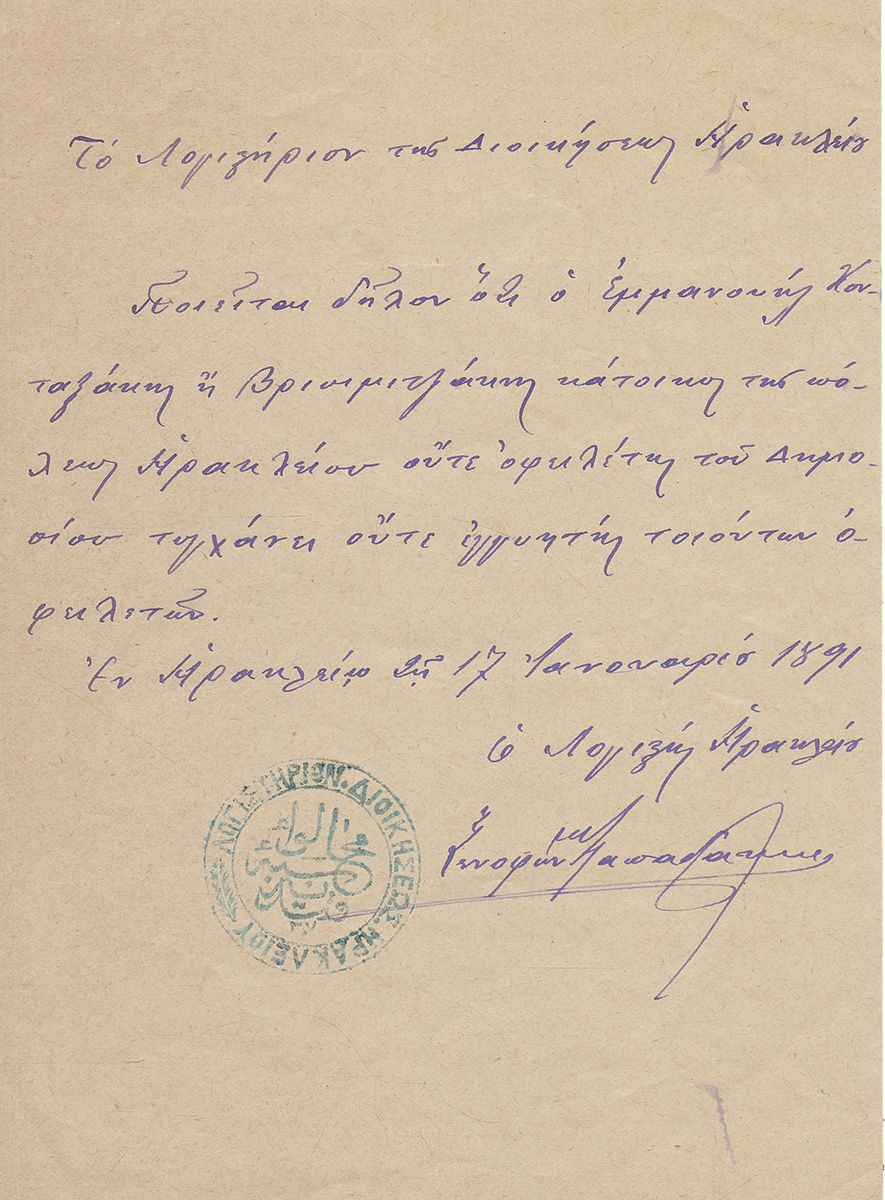 Τό Λογιστήριον της Διοικήσεως Ηρακλείου
Ποιεῖται δῆλον ὅτι ὁ Ἐμμανουήλ Κον-
ταξάκης ἤ κάτοικος της πό-
λεως Ἡρακλείου οὔτε ὀφειλέτης τοῦ Δημο-
σίου τυγχάνει οὔτε ἐγγυητής τοιούτων ὀ-
φειλετῶν.
Ἐν Ἡρακλείῳ τῇ 17 Ἰανουαρίου 1891
Ὁ Λογιστής Ἡρακλείου
Ξενοφῶν Παπαδάκης
ΛΟΓΙΣΤΗΡΙΟΝ. ΔΙΟΙΚΗΣΕΩΣ. ΗΡΑΚΛΕΙΟΥ